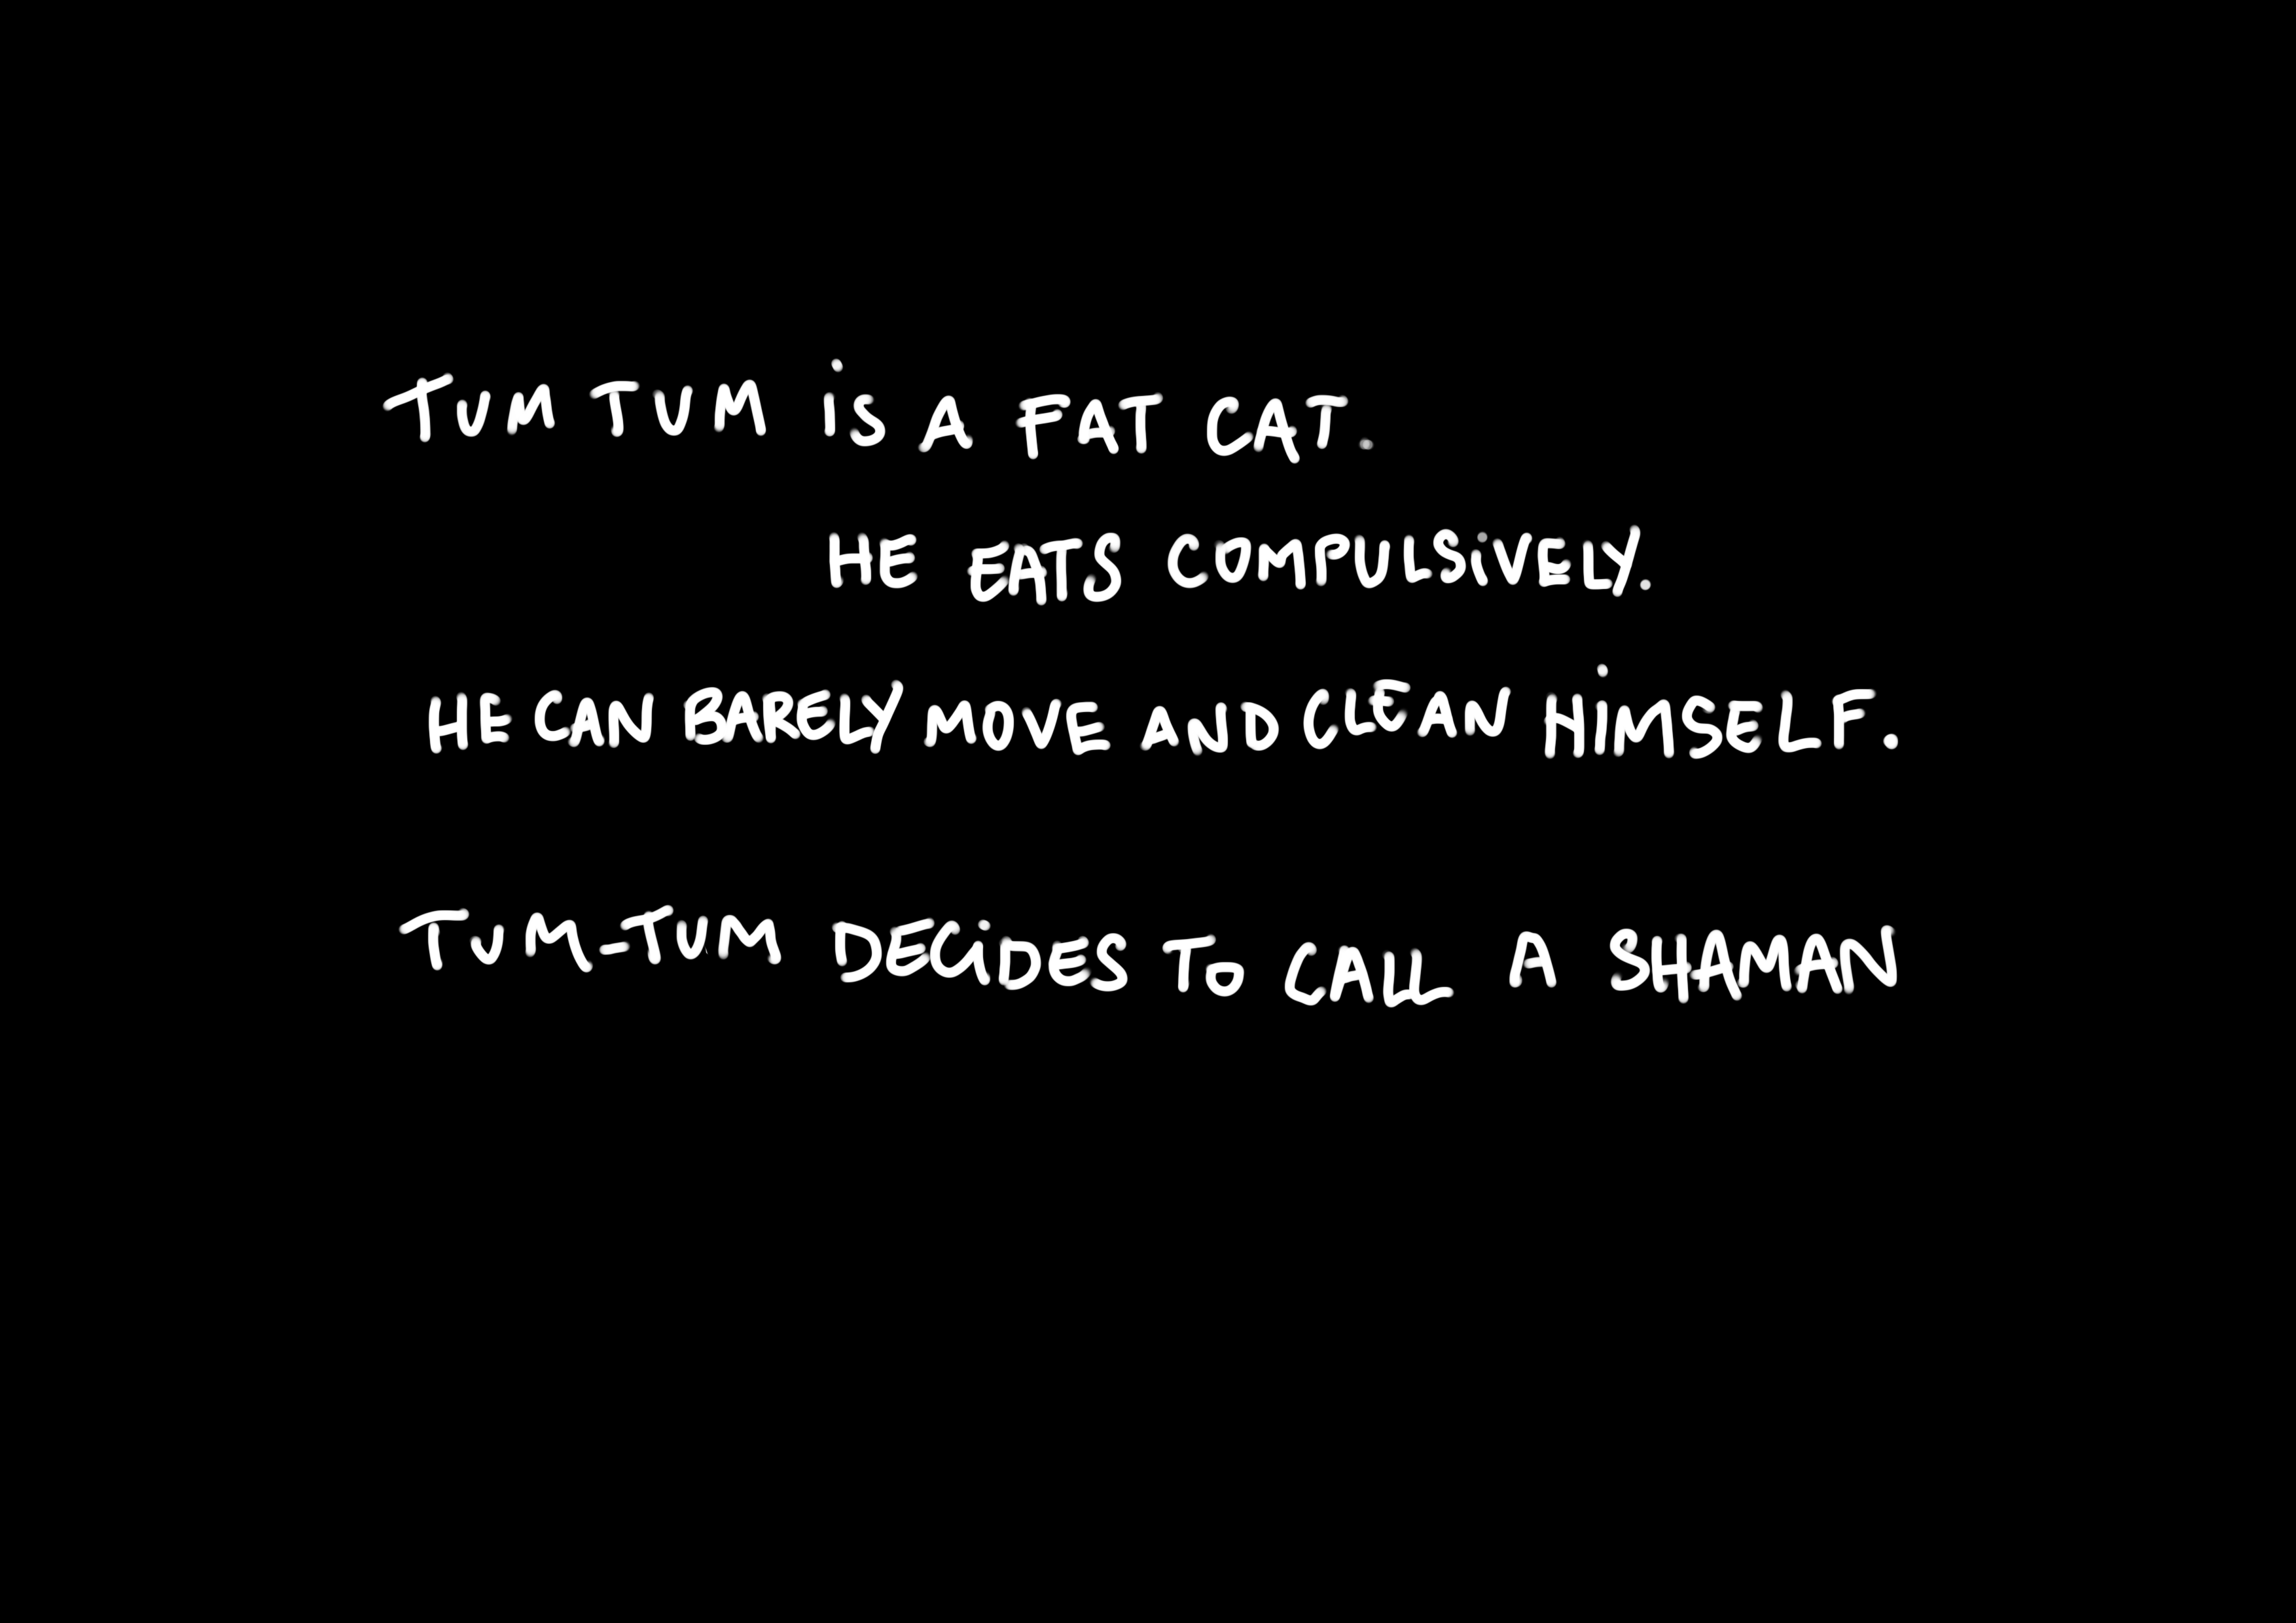 TUM TUM iS A FAT CAT.
HE EATS COMPULSiVELY.
HE CAN BARELY MOVE AND CLEAN HiMSELF.
TUM-TUM DECiDES TO CALL A SHAMAN